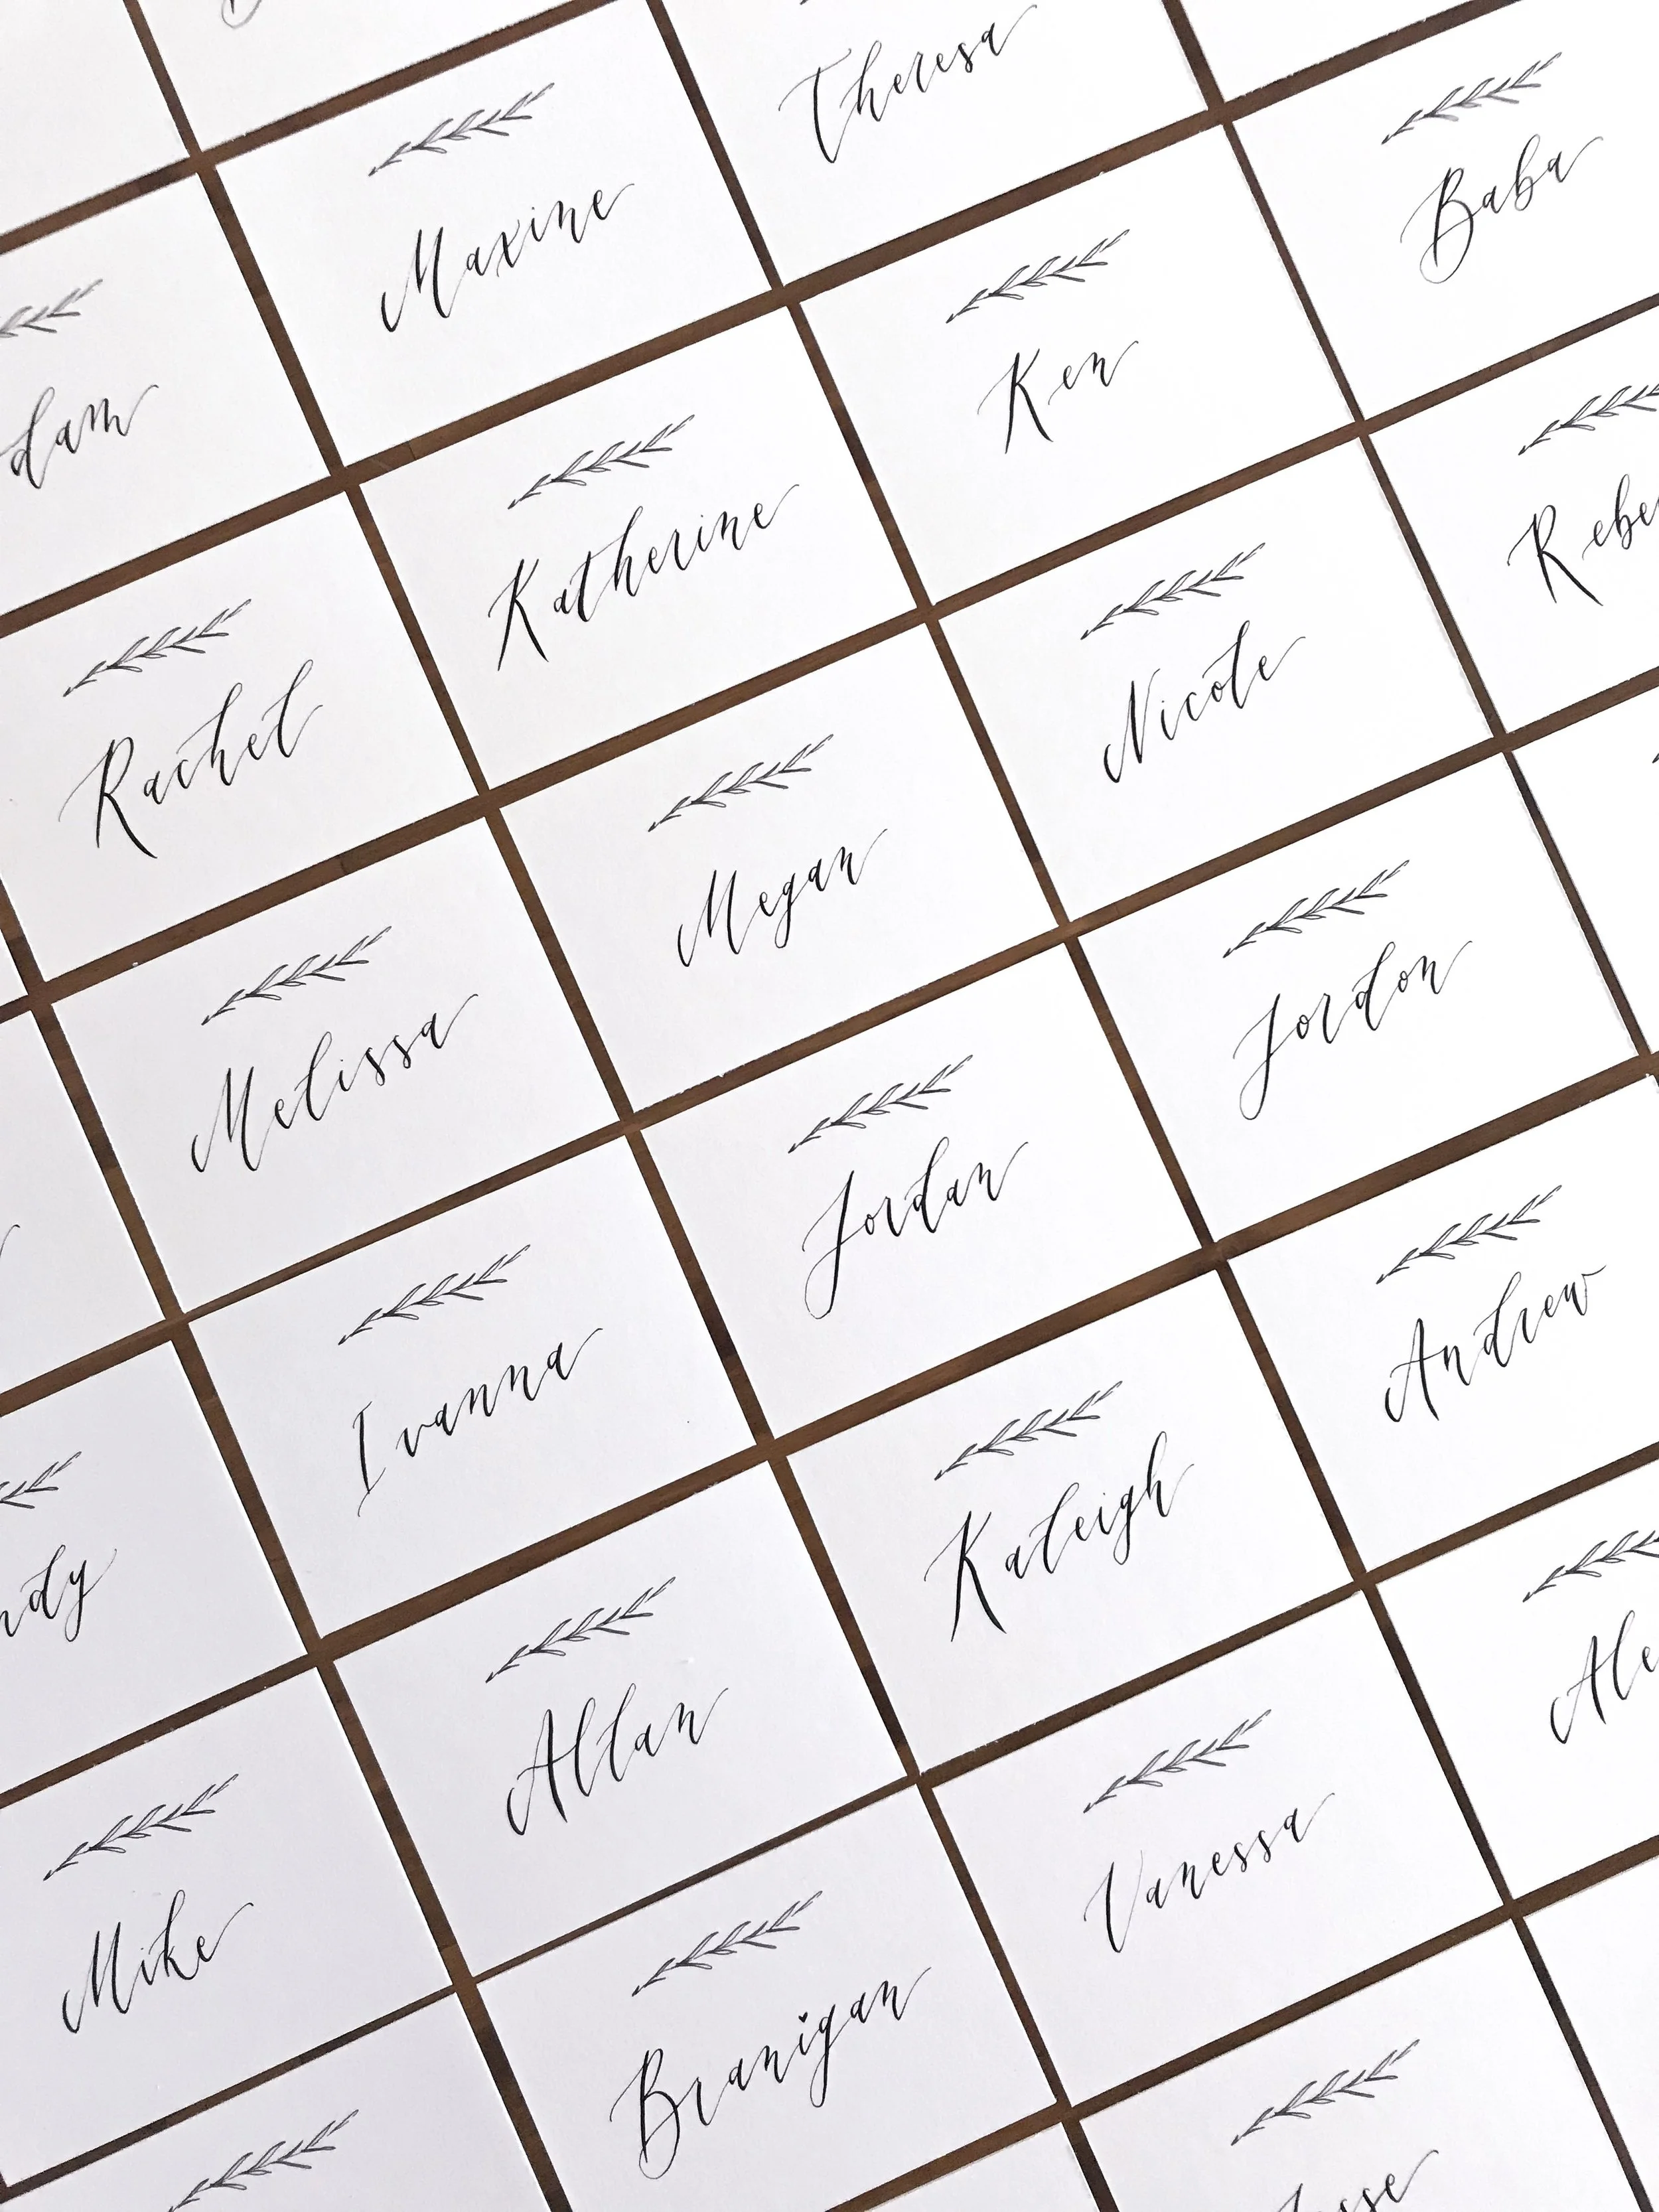 Theresa
Baba
Maxine
Ken
Rebe
dam
Katherine
Nicole
Rachel
Megan
Jordon
Melissa
Jordan
Andrew
Ivanna
Kaleigh
Ale
ndy
Allan
Vanessa
Mike
Branigan
esse